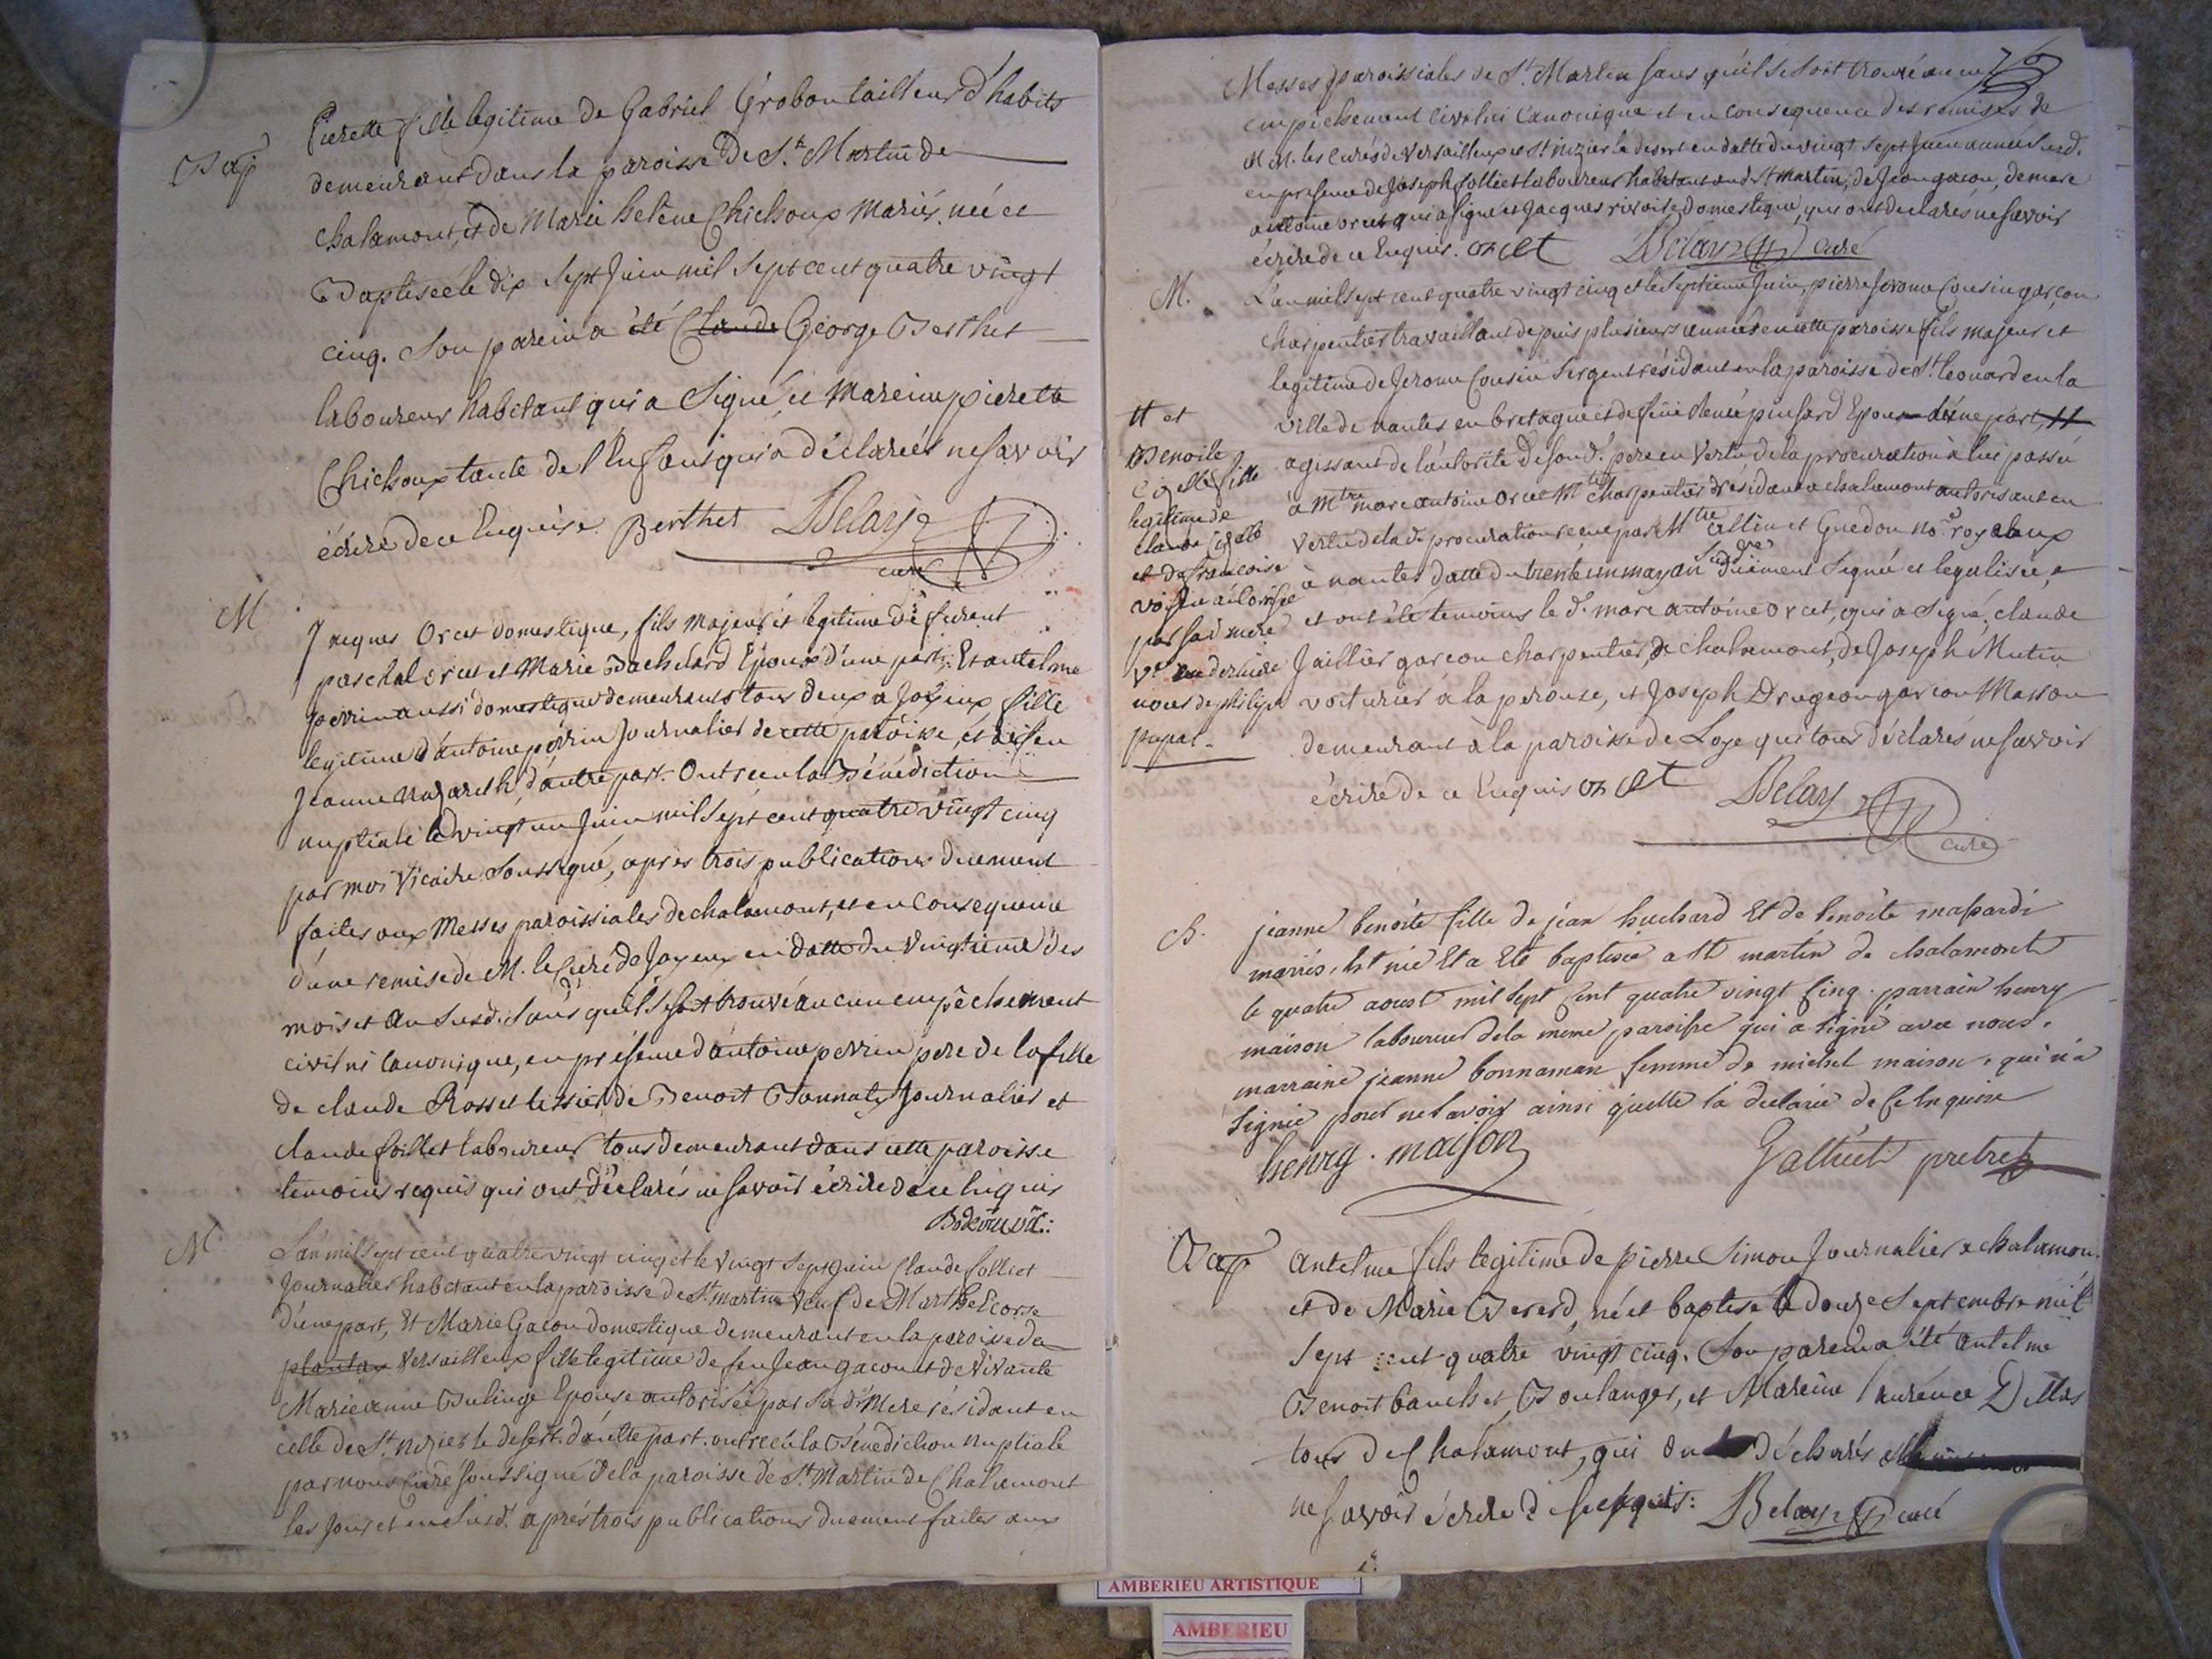 Bap
Pierette fille legitime de Gabriel Grobon tailleur d'habits
demeurant dans la paroisse de St. Martin de
chalamont, et de Marie helene Chichoux mariés, née et
Baptisée le dix sept Juin mil sept cent quatre vingt
cinq. Son parein a été Claude George Berthet
laboureur habitant qui a Signé et Mareine pierette
Chichoux tante de l'Enfant qui a déclarées ne savoir
écrire de ce Enquise. Berthet Belay
curé
M
Jacques Orcet domestique, fils majeur et legitime de furent
paschal orcet et Marie Bachelard Epoux d'une part; Et antelme
perrin aussi domestique demeurants tous deux a Joyeux, fille
legitime d'antoine perrin Journalier de cette paroisse, et de feu
Jeanne Nazareth, d'autre part. Ont recu la Bénédiction
nuptiale le vingt un Juin mil sept cent quatre vingt cinq
par moi Vicaire Soussigné, apres trois publications duement
faites aux Messes paroissiales de chalamont, et en Consequence
d'une remise de M. le Curé de Joyeux en datte du vingtieme des
mois et an susd. sans qu'il se soit trouvé aucun empêchement
civil ni canonique, en présence d'antoine perrin pere de la fille
de claude Rosset tessier de Benoit Bonnat Journalier et
claude folliet laboureur tous demeurant dans cette paroisse
temoins requis qui ont déclarés ne savoir écrire de ce Enquis
M.
L'an mil sept cent quatre vingt cinq et le vingt sept Juin Claude folliet
Journalier habitant en la paroisse de St. martin veuf de Marthe Ecorse
d'une part, Et Marie Gacon domestique demeurant en la paroisse de
plantay Versailleux fille legitime de feu Jean gacon et de vivante
Marieanne Bulinge Epouse autorisée par sa de. Mere résidant en
celle de St. nizier le desert. d'autre part. ont recu la Bénédiction Nuptiale
par nous Curé soussigné de la paroisse de St. Martin de Chalamont
les Jour et an susd. après trois publications duement faites aux
Messes paroissiales de St. Martin sans qu'il se soit trouvé aucun
empêchement civil ni Canonique et en consequence des remises de
MM. les Curés de Versailleux et St nizier le desert en datte du vingt sept Juin année susd.
en presence de Joseph folliet laboureur habitant aud. St martin, de Jean gacon, de marc
antoine orcet qui a signé et Jacques rivoire domestique, qui ont declarés ne savoir
écrire de ce Enquis. orcet Belay curé
M.
L'an mil sept cent quatre vingt cinq et le septieme Juin, pierre Jerome Cousin garçon
charpentier travaillant depuis plusieurs années en cette paroisse fils majeur et
legitime de Jerome Cousin Sergent résidant en la paroisse de St. leonard en la
ville de nantes en bretagne et de feüe Renée pinsard Epoux d'une part, ++
agissant de l'autorité de son d. pere en vertu de la procuration à lui passée
à Mtre marc antoine orcet Mtre Charpentier résidant a chalamont autorisant en
vertu de la de. procuration recue par Mtre allin et Guedon nores. royaleux
à nantes datte du trente un may an susd. duement Signée et legalisée,
et ont été temoins le d. marc antoine orcet, qui a Signé. claude
Jaillier garcon charpentier, de chalamont, de Joseph Mutin
voiturier à la perouse, et Joseph Drugeon garcon Masson
demeurant à la paroisse de Loye qui tous déclarés ne savoir
écrire de ce Enquis orcet Belay
curé
++ et
Benoite
Cizelle fille
legitime de
claude Cizelle
et de francoise
voisin autorisée
par sad mere
ve. en derniere
noces de philipe
pupat.
B.
jeanne benoite fille de jean huchard Et de benoite massardi
mariés, Est née Et a Eté baptisée a St martin de chalamont
le quatre aoust mil sept Cent quatre vingt Cinq. parrain henry
maison laboureur de la meme paroisse qui a signé avec nous.
marraine jeanne bonnaman femme de michel maison, qui n'a
signée pour ne savoir ainsi qu'elle l'a declarée de ce Enquise
henry. maison Galliéti pretre
Bap
Antelme fils legitime de pierre Simon Journalier a chalamon.
et de Marie Berard, né et baptisé le douze Septembre mil
sept cent quatre vingt cinq. Son parein a été antelme
Benoit bauchet Boulanger, et Mareine laurence Dillas
tous de Chalamont, qui ont déclarés
ne savoir écrire de ce enquis: Belay curé
AMBERIEU ARTISTIQUE
AMBERIEU